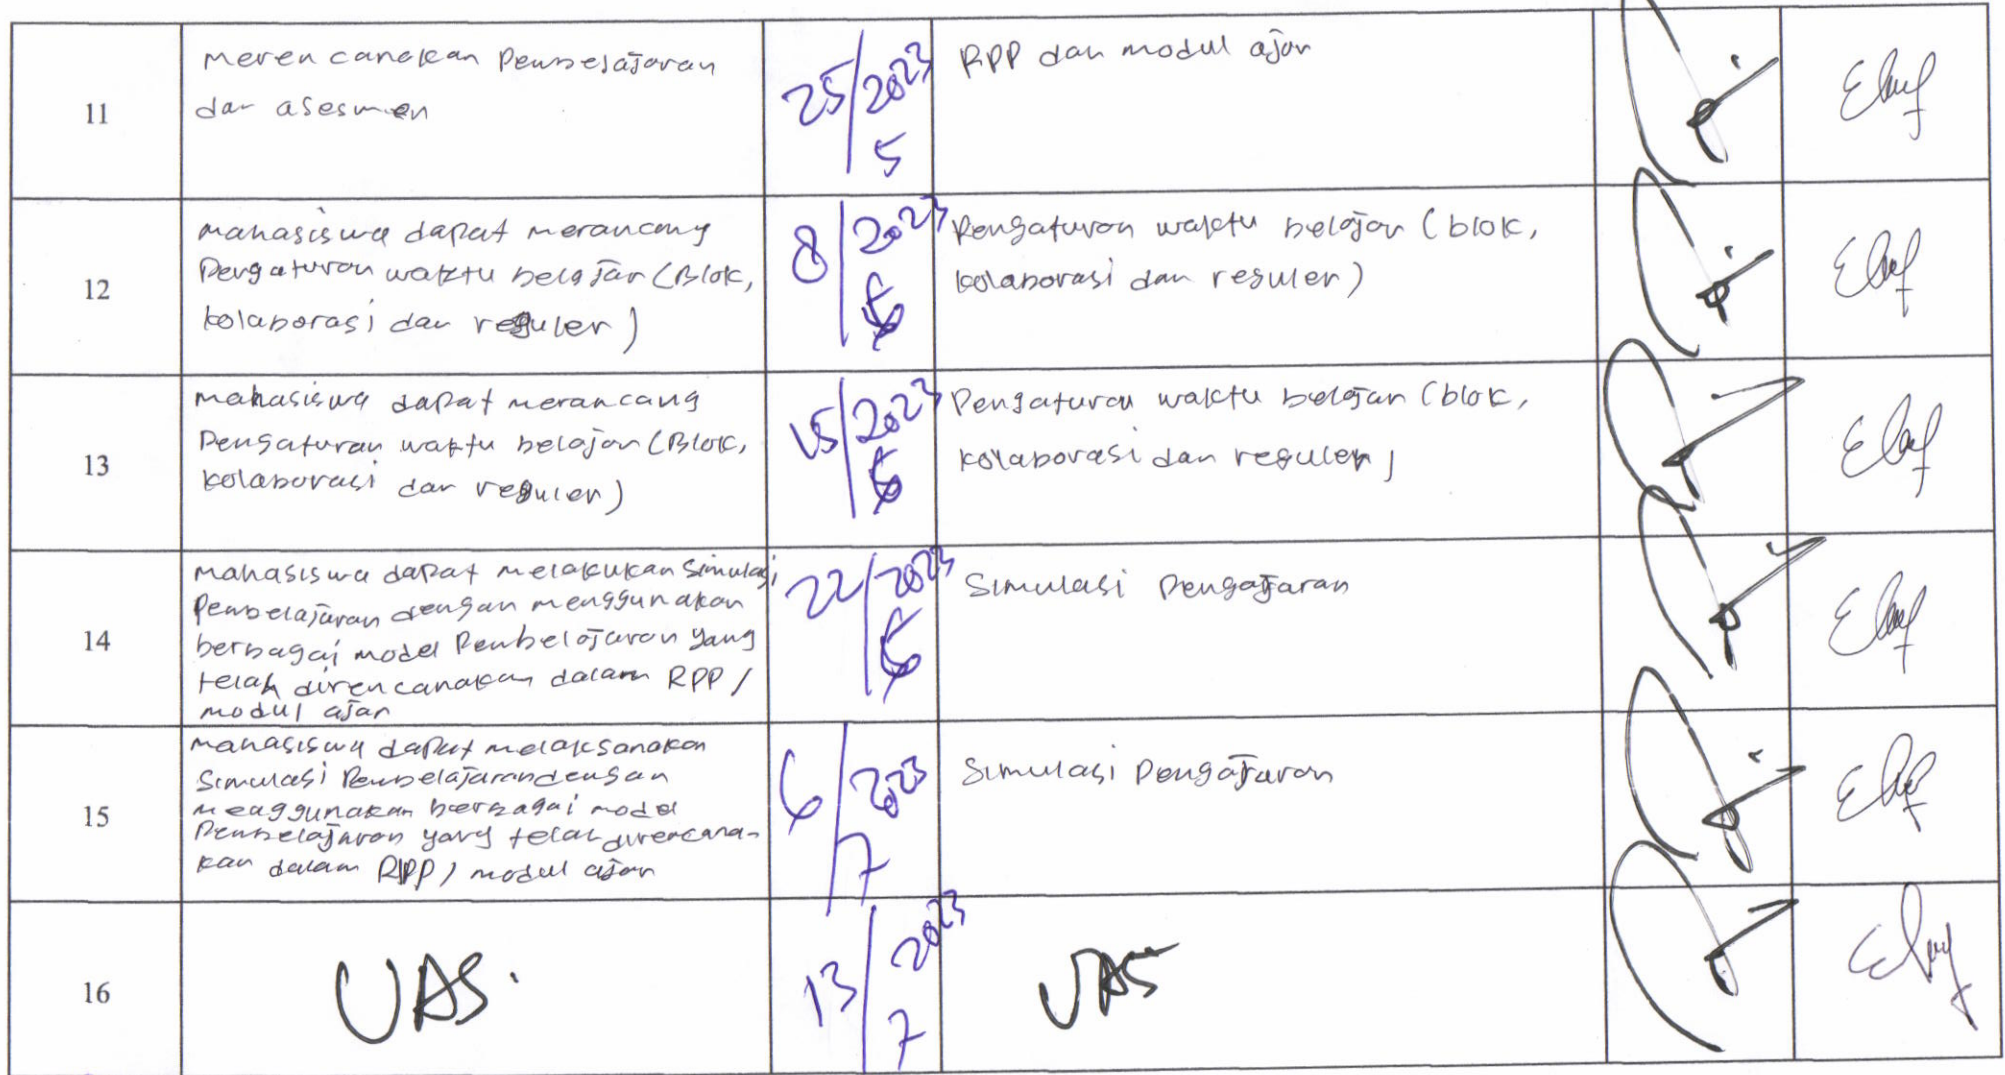 11
merencanakan Pembelajaran
dan asesmen
25/2023
5
RPP dan modul ajar
12
mahasiswa dapat merancang
Pengaturan waktu belajar (Blok,
kolaborasi dan reguler)
8/2023
6
Pengaturan waktu belajar (blok,
kolaborasi dan reguler)
13
mahasiswa dapat merancang
Pengaturan waktu belajar (Blok,
kolaborasi dan reguler)
15/2023
6
Pengaturan waktu belajar (blok,
kolaborasi dan reguler)
14
mahasiswa dapat melakukan simulasi
Pembelajaran dengan menggunakan
berbagai model Pembelajaran yang
telah direncanakan dalam RPP /
modul ajar
22/2023
6
Simulasi Pengajaran
15
mahasiswa dapat melaksanakan
Simulasi Pembelajaran dengan
menggunakan berbagai model
Pembelajaran yang telah direncana-
kan dalam RPP / modul ajar
6/2023
7
Simulasi Pengajaran
16
UAS.
13/2023
7
UAS